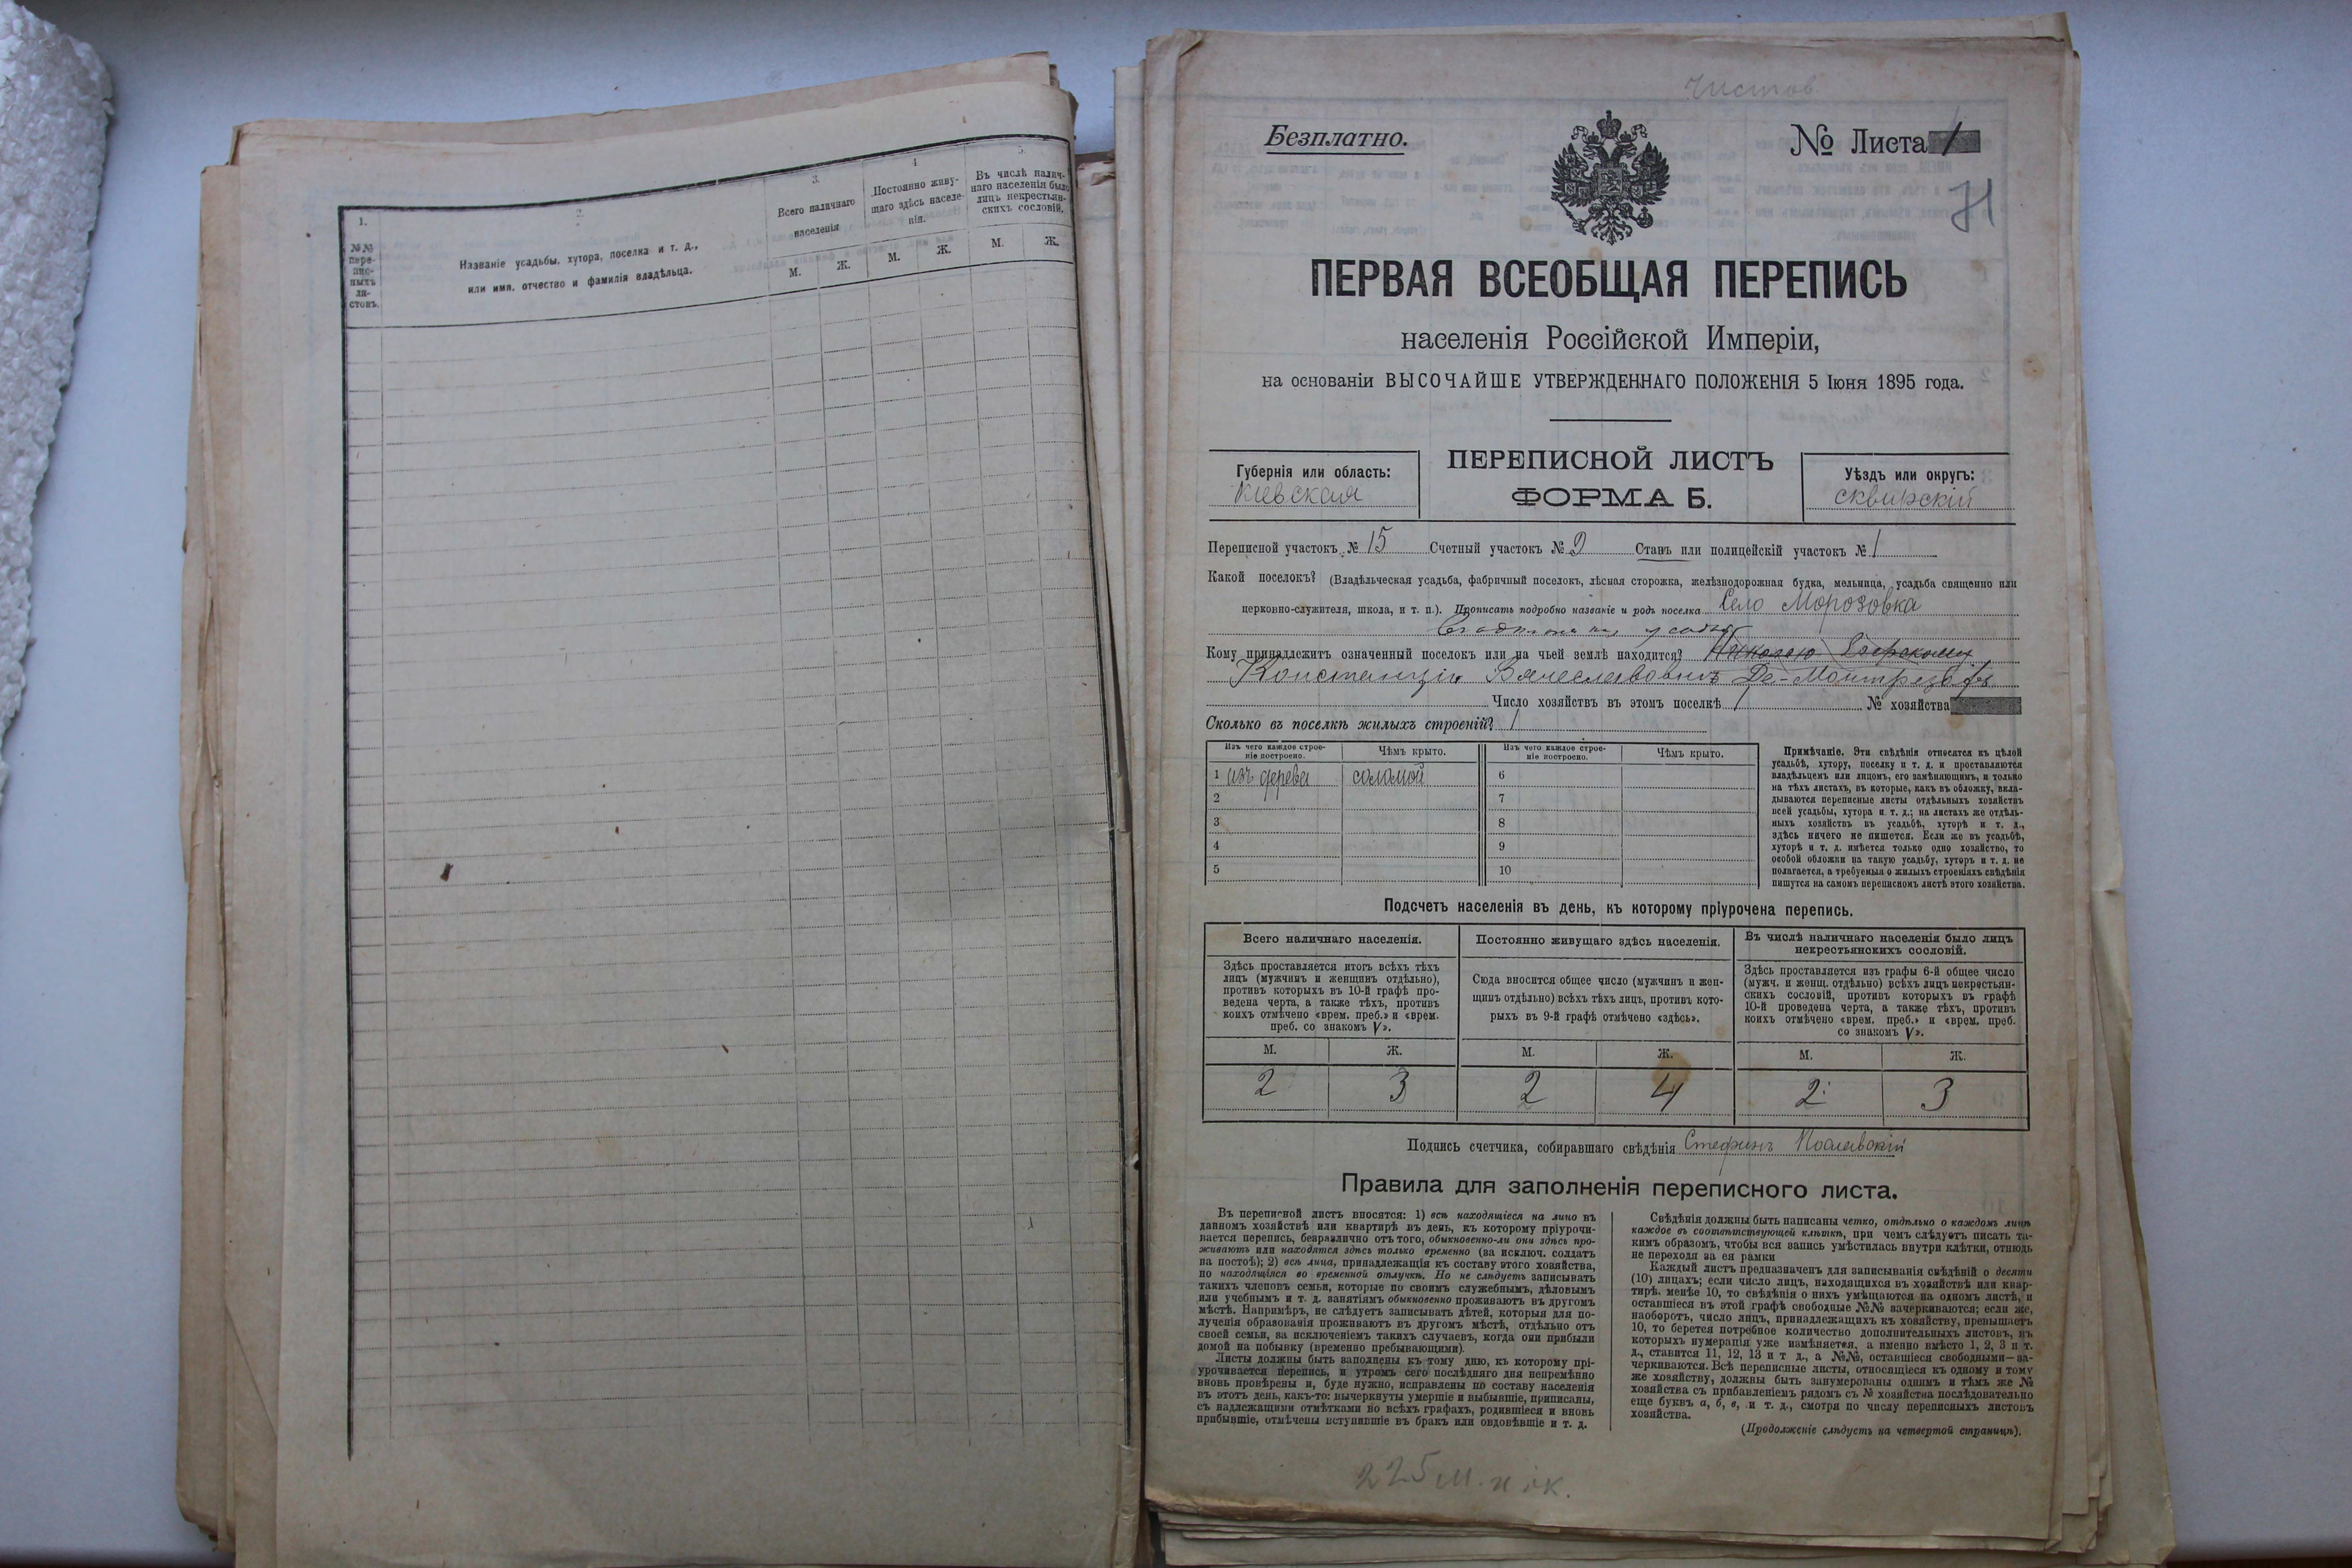 1.
№№ пере-
пис-
ныхъ
ли-
стовъ.
2.
Названіе усадьбы, хутора, поселка и т. д.,
или имя, отчество и фамилія владѣльца.
3.
Всего наличнаго
населенія
М. Ж.
4
Постоянно живу-
щаго здѣсь населе-
нія.
М. Ж.
5.
Въ числѣ налич-
наго населенія было
лицъ некрестьян-
скихъ сословій.
М. Ж.
Чистов
Безплатно.
№ Листа 1
71
ПЕРВАЯ ВСЕОБЩАЯ ПЕРЕПИСЬ
населенія Россійской Имперіи,
на основаніи ВЫСОЧАЙШЕ УТВЕРЖДЕННАГО ПОЛОЖЕНІЯ 5 Іюня 1895 года.
Губернія или область:
Кіевская
ПЕРЕПИСНОЙ ЛИСТЪ
ФОРМА Б.
Уѣздъ или округъ:
сквирскій
Переписной участокъ № 15 Счетный участокъ № 2 Станъ или полицейскій участокъ № 1
Какой поселокъ? (Владѣльческая усадьба, фабричный поселокъ, лѣсная сторожка, желѣзнодорожная будка, мельница, усадьба священно или
церковно-служителя, школа, и т. п.). Прописать подробно названіе и родъ поселка Село Морозовка
Кому принадлежитъ означенный поселокъ или на чьей землѣ находится? Николаю
Вячеславовичъ Де-Монтрезоръ
Число хозяйствъ въ этомъ поселкѣ 1 № хозяйства
Сколько въ поселкѣ жилыхъ строеній? 1
Изъ чего каждое строе-
ніе построено.
Чѣмъ крыто.
Изъ чего каждое строе-
ніе построено.
Чѣмъ крыто.
1 изъ дерева соломой 6
2 7
3 8
4 9
5 10
Примѣчаніе. Эти свѣдѣнія относятся къ цѣлой
усадьбѣ, хутору, поселку и т. д. и проставляются
владѣльцемъ или лицомъ, его замѣняющимъ, и только
на тѣхъ листахъ, въ которые, какъ въ обложку, вкла-
дываются переписные листы отдѣльныхъ хозяйствъ
всей усадьбы, хутора и т. д.; на листахъ же отдѣль-
ныхъ хозяйствъ въ усадьбѣ, хуторѣ и т. д.,
здѣсь ничего не пишется. Если же въ усадьбѣ,
хуторѣ и т. д. имѣется только одно хозяйство, то
особой обложки на такую усадьбу, хуторъ и т. д. не
полагается, а требуемыя о жилыхъ строеніяхъ свѣдѣнія
пишутся на самомъ переписномъ листѣ этого хозяйства.
Подсчетъ населенія въ день, къ которому пріурочена перепись.
Всего наличнаго населенія.
Здѣсь проставляется итогъ всѣхъ тѣхъ
лицъ (мужчинъ и женщинъ отдѣльно),
противъ которыхъ въ 10-й графѣ про-
ведена черта, а также тѣхъ, противъ
коихъ отмѣчено «врем. преб.» и «врем.
преб. со знакомъ V».
М. Ж.
2 3
Постоянно живущаго здѣсь населенія.
Сюда вносится общее число (мужчинъ и жен-
щинъ отдѣльно) всѣхъ тѣхъ лицъ, противъ кото-
рыхъ въ 9-й графѣ отмѣчено «здѣсь».
М. Ж.
2 4
Въ числѣ наличнаго населенія было лицъ
некрестьянскихъ сословій.
Здѣсь проставляется изъ графы 6-й общее число
(мужч. и женщ. отдѣльно) всѣхъ лицъ некрестьян-
скихъ сословій, противъ которыхъ въ графѣ
10-й проведена черта, а также тѣхъ, противъ
коихъ отмѣчено «врем. преб.» и «врем. преб.
со знакомъ V».
М. Ж.
2 3
Подпись счетчика, собиравшаго свѣдѣнія Стефанъ
Правила для заполненія переписного листа.
Въ переписной листъ вносятся: 1) всѣ находящіеся на лицо въ
данномъ хозяйствѣ или квартирѣ въ день, къ которому пріурочи-
вается перепись, безразлично отъ того, обыкновенно-ли они здѣсь про-
живаютъ или находятся здѣсь только временно (за исключ. солдатъ
на постоѣ); 2) всѣ лица, принадлежащія къ составу этого хозяйства,
но находящіяся во временной отлучкѣ. Но не слѣдуетъ записывать
такихъ членовъ семьи, которые по своимъ служебнымъ, дѣловымъ
или учебнымъ и т. д. занятіямъ обыкновенно проживаютъ въ другомъ
мѣстѣ. Напримѣръ, не слѣдуетъ записывать дѣтей, которыя для по-
лученія образованія проживаютъ въ другомъ мѣстѣ, отдѣльно отъ
своей семьи, за исключеніемъ такихъ случаевъ, когда они прибыли
домой на побывку (временно пребывающими).
Листы должны быть заполнены къ тому дню, къ которому прі-
урочивается перепись, и утромъ сего послѣдняго дня непремѣнно
вновь провѣрены и, буде нужно, исправлены по составу населенія
въ этотъ день, какъ-то: вычеркнуты умершіе и выбывшіе, приписаны,
съ надлежащими отмѣтками во всѣхъ графахъ, родившіеся и вновь
прибывшіе, отмѣчены вступившіе въ бракъ или овдовѣвшіе и т. д.
Свѣдѣнія должны быть написаны четко, отдѣльно о каждомъ лицѣ
каждое въ соотвѣтствующей клѣткѣ, при чемъ слѣдуетъ писать та-
кимъ образомъ, чтобы вся запись умѣстилась внутри клѣтки, отнюдь
не переходя за ея рамки
Каждый листъ предназначенъ для записыванія свѣдѣній о десяти
(10) лицахъ; если число лицъ, находящихся въ хозяйствѣ или квар-
тирѣ, менѣе 10, то свѣдѣнія о нихъ умѣщаются на одномъ листѣ, и
оставшіеся въ этой графѣ свободные №№ зачеркиваются; если же,
наоборотъ, число лицъ, принадлежащихъ къ хозяйству, превышаетъ
10, то берется потребное количество дополнительныхъ листовъ, въ
которыхъ нумерація уже измѣняется, а именно вмѣсто 1, 2, 3 и т.
д., ставится 11, 12, 13 и т д., а №№, оставшіеся свободными—за-
черкиваются. Всѣ переписные листы, относящіеся къ одному и тому
же хозяйству, должны быть занумерованы однимъ и тѣмъ же №
хозяйства съ прибавленіемъ рядомъ съ № хозяйства послѣдовательно
еще буквъ а, б, в, и т. д., смотря по числу переписныхъ листовъ
хозяйства.
(Продолженіе слѣдуетъ на четвертой страницѣ).
225